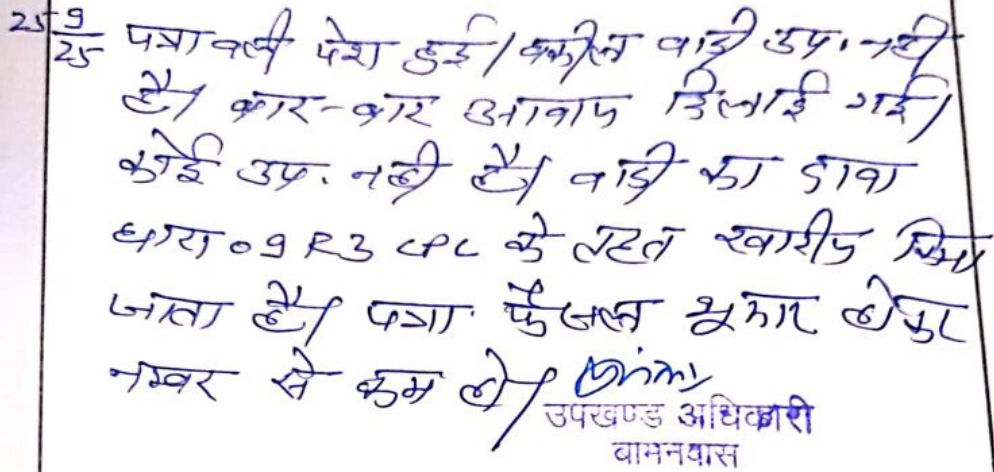 25/9/25 पत्रावली पेश हुई। वकील वादी उप. नही
है। बार-बार आवाज दिलाई गई।
कोई उप. नही है। वादी का दावा
धारा 09 R3 CPC के तहत खारीज किया
जाता है। पत्रा फैसल शुमार होकर
नम्बर से कम हो।
उपखण्ड अधिकारी
बामनवास